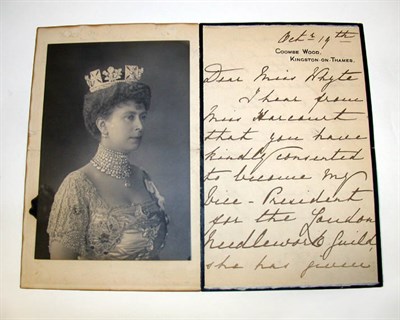 Octr 19th
COOMBE WOOD,
KINGSTON-ON-THAMES.
Dear Miss Whyte
I hear from
Miss Harcourt
that you have
kindly consented
to become my
Vice-President
for the London
Needlework Guild,
she has given